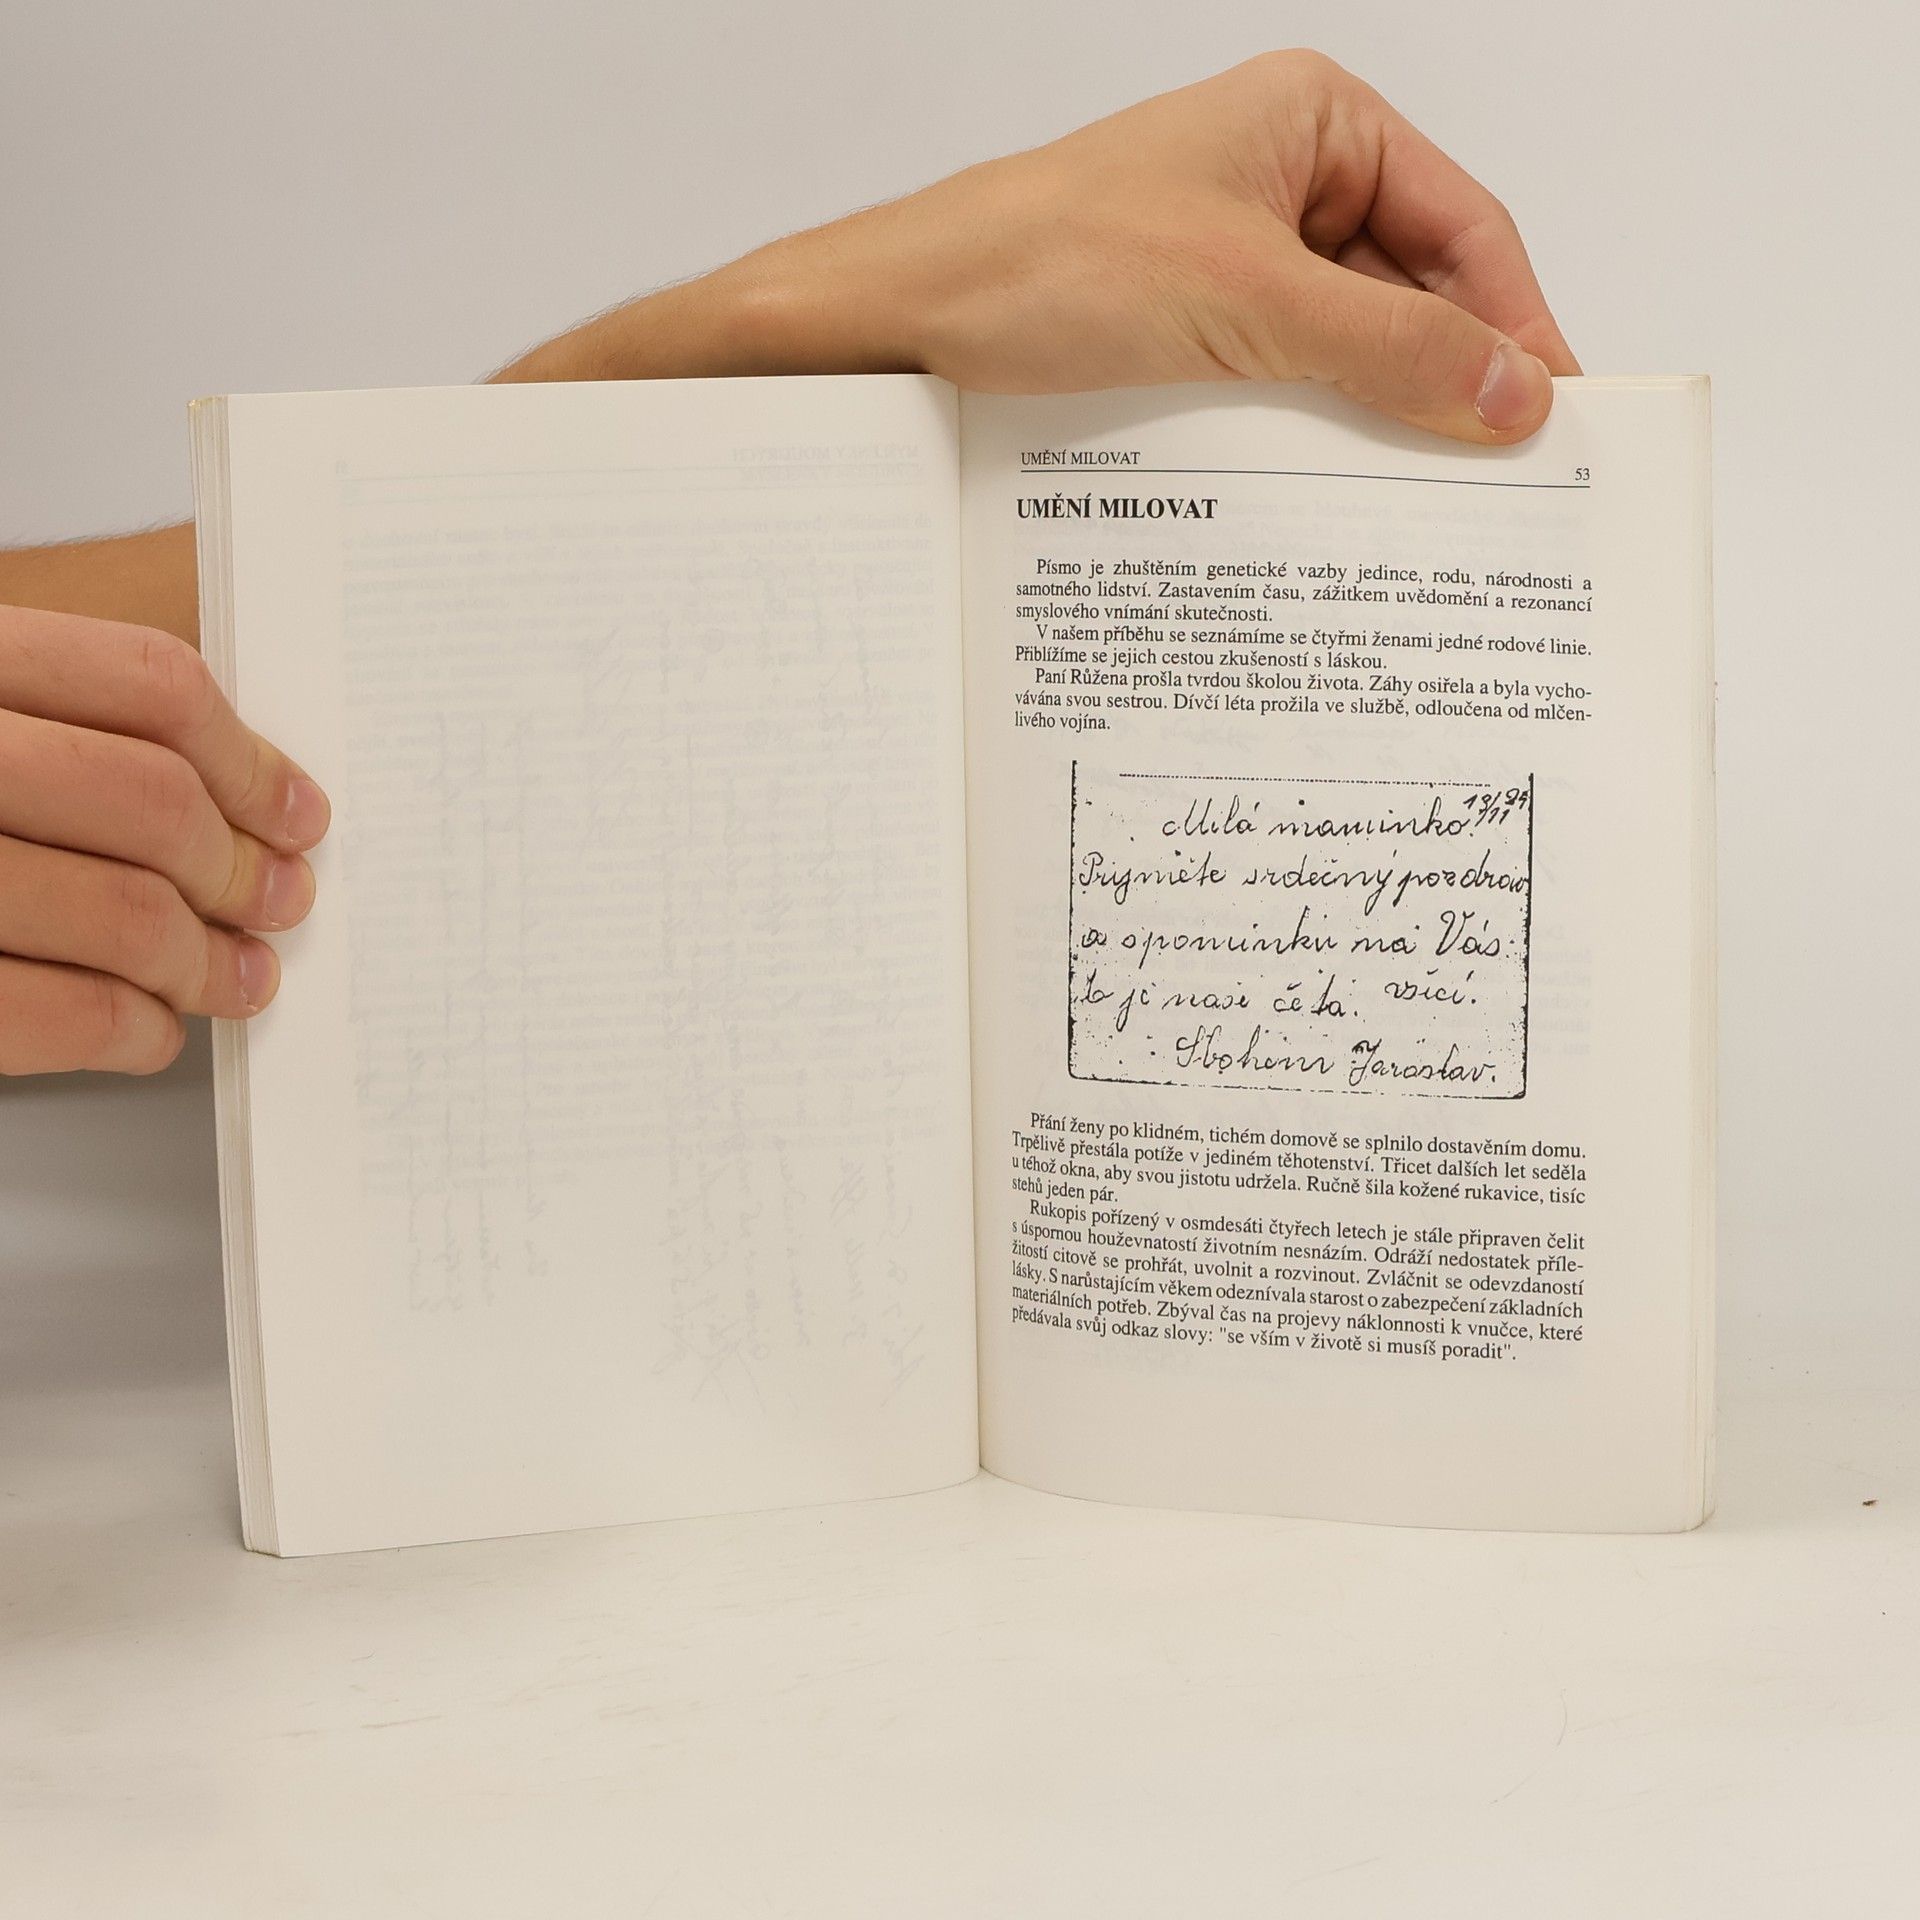 UMĚNÍ MILOVAT
53
UMĚNÍ MILOVAT
Písmo je zhuštěním genetické vazby jedince, rodu, národnosti a
samotného lidství. Zastavením času, zážitkem uvědomění a rezonancí
smyslového vnímání skutečnosti.
V našem příběhu se seznámíme se čtyřmi ženami jedné rodové linie.
Přiblížíme se jejich cestou zkušeností s láskou.
Paní Růžena prošla tvrdou školou života. Záhy osiřela a byla vycho-
vávána svou sestrou. Dívčí léta prožila ve službě, odloučena od mlčen-
livého vojína.
Milá maminko!
Prijměte srdečný pozdrav
a spominku na Vás
to je nase četa. vsicí.
Sbohem Jaroslav.
Přání ženy po klidném, tichém domově se splnilo dostavěním domu.
Trpělivě přestála potíže v jediném těhotenství. Třicet dalších let seděla
u téhož okna, aby svou jistotu udržela. Ručně šila kožené rukavice, tisíc
stehů jeden pár.
Rukopis pořízený v osmdesáti čtyřech letech je stále připraven čelit
s úspornou houževnatostí životním nesnázím. Odráží nedostatek příle-
žitostí citově se prohřát, uvolnit a rozvinout. Zvláčnit se odevzdaností
lásky. S narůstajícím věkem odeznívala starost o zabezpečení základních
materiálních potřeb. Zbýval čas na projevy náklonnosti k vnučce, které
předávala svůj odkaz slovy: "se vším v životě si musíš poradit".